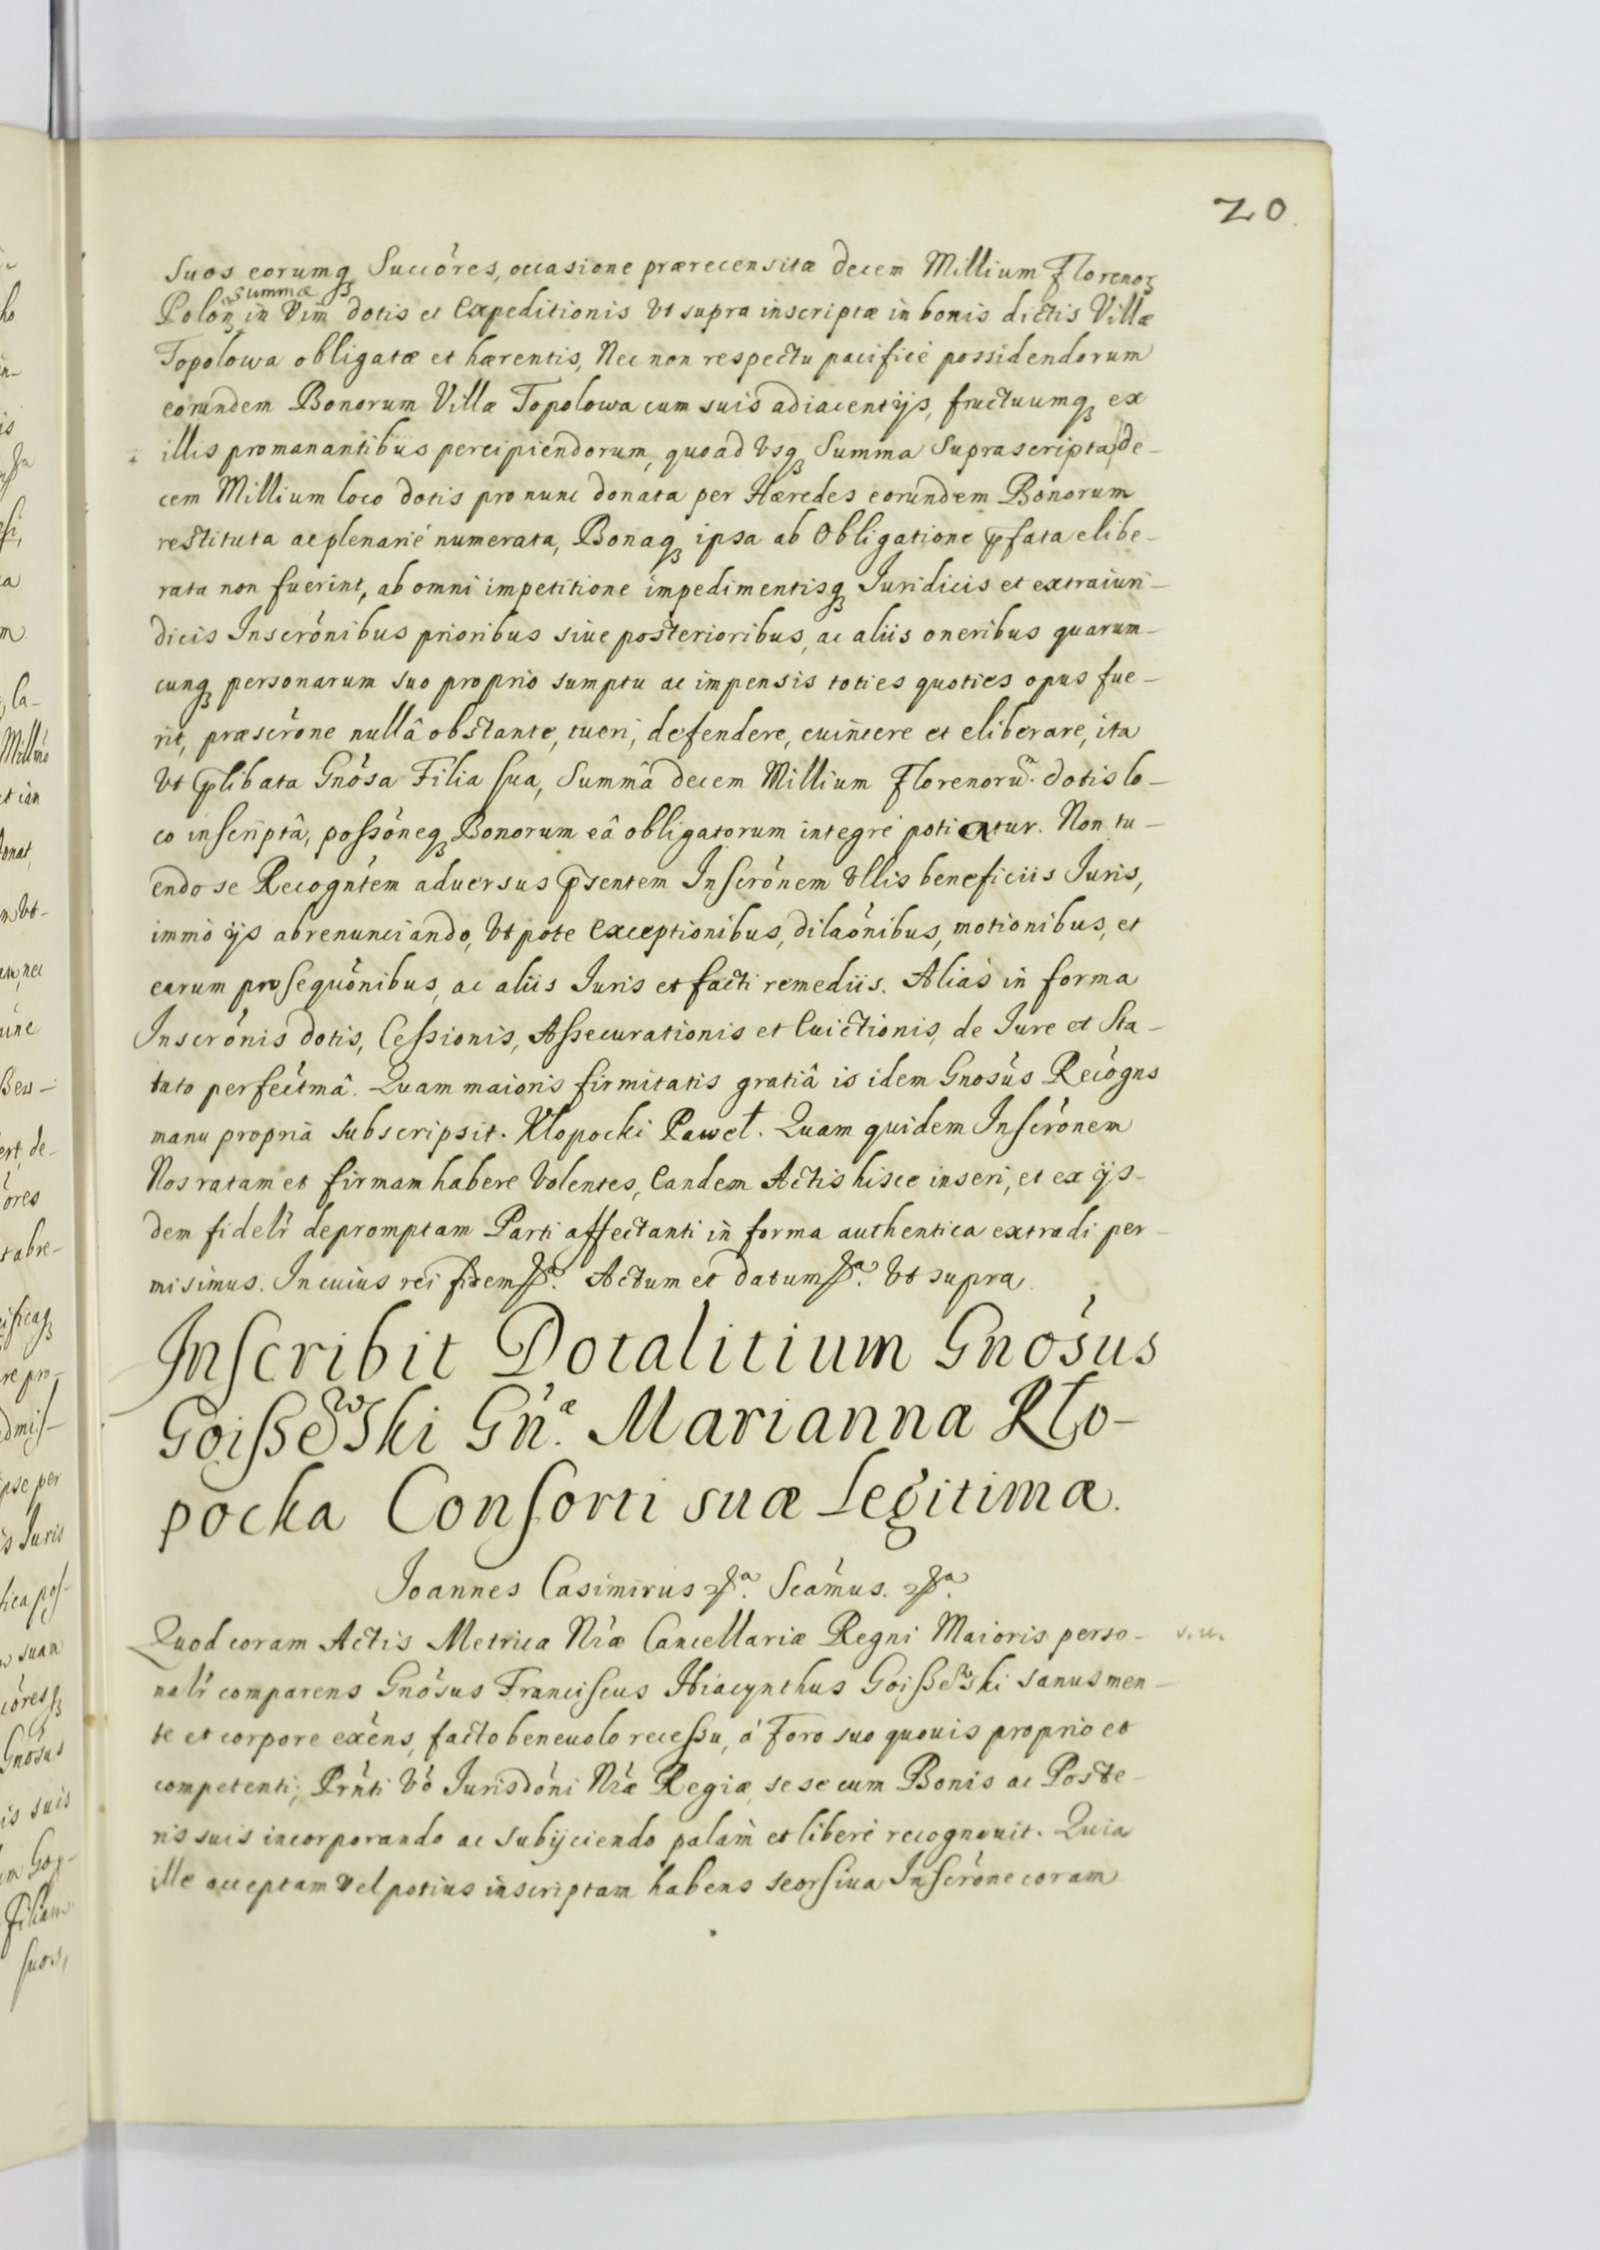 20
suos eorumq Succôres, occasione prærecensitæ decem Millium Florenor
summæ
Polon in Vim dotis et Expeditionis Vt supra inscriptæ in bonis dictis Villæ
Topolowa obligatæ et hærentis, Nec non respectu pacificè possidendorum
eorundem Bonorum Villæ Topolowa cum suis adiacentijs, fructuumq ex
illis promanantibus percipiendorum, quoad Vsq Summa Suprascripta de-
cem Millium loco dotis pro nunc donata per Hæredes eorundem Bonorum
restituta ac plenariè numerata, Bonaq ipsa ab Obligatione pfata elibe-
rata non fuerint, ab omni impetitione impedimentisq Iuridicis et extraiuri-
dicis Inscrônibus prioribus siue posterioribus, ac aliis oneribus quarum-
cunq personarum suo proprio sumptu ac impensis toties quoties opus fue-
rit, præscrône nullâ obstante, tueri, defendere, euincere et eliberare, ita
Vt plibata Gnôsa Filia sua, Summâ decem Millium Florenorũ. dotis lo-
co inscriptâ, possôneq Bonorum eâ obligatorum integrè potiatur. Non tu-
endo se Recogntem aduersus psentem Inscrônem Vllis beneficiis Iuris,
immò ijs abrenunciando, Vt pote exceptionibus, dilaônibus, motionibus, et
earum prosequônibus, ac aliis Iuris et facti remediis. Aliàs in forma
Inscrônis dotis, Cessionis, Assecurationis et Euictionis, de Iure et Sta-
tuto perfectmâ. Quam maioris firmitatis gratiâ is idem Gnosùs Recògns
manu propriâ subscripsit. Kłopocki Paweł. Quam quidem Inscrônem
Nos ratam et firmam habere Volentes, Eandem Actis hisce inseri, et ex ijs-
dem fidelr depromptam Parti affectanti in forma authentica extradi per-
misimus. In cuius rei fidem &a. Actum et datum &a. Vt supra.
Inscribit Dotalitium Gnósus
Goissewski Gn.æ Marianna Kło-
pocka Consorti suæ Legitimæ.
Ioannes Casimirus &a. Scamus. &a.
Quod coram Actis Metrica Nræ Cancellariæ Regni Maioris perso-
nalr comparens Gnôsus Franciscus Hiacynthus Goissewski sanus men-
te et corpore exêns, facto beneuolo recessu, à Foro suo quouis proprio et
competenti; Prnti Vò Iurisdôni Nræ Regiæ, se se cum Bonis ac Poste-
ris suis incorporando ac subijciendo palàm et liberè recognouit. Quia
ille acceptam vel potius inscriptam habens seorsiua Inscrône coram